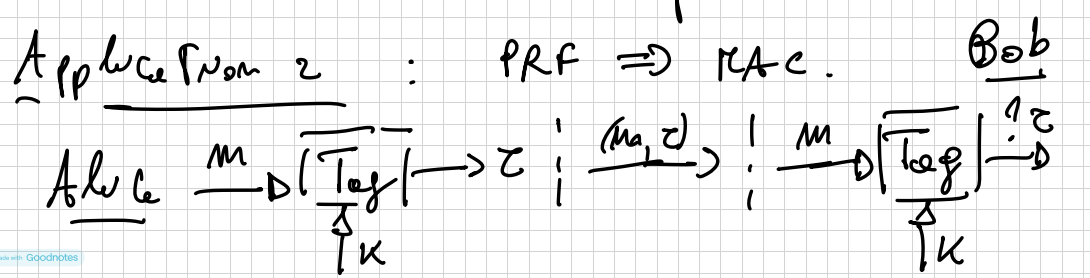 Application 2 : PRF ⇒ MAC. Bob
Alice m → Tag → τ (m, τ) → m → Tag → ? τ
K K
made with Goodnotes